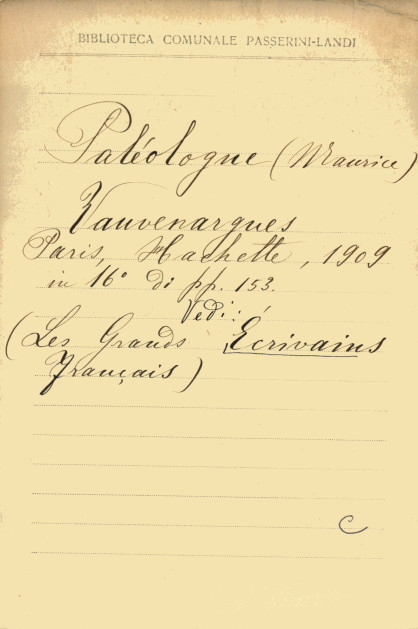 BIBLIOTECA COMUNALE PASSERINI-LANDI
Paléologue (Maurice)
Vauvenargues
Paris, Hachette, 1909
in 16° di pp. 153.
Vedi:
(Les Grands Écrivains
Français)
C